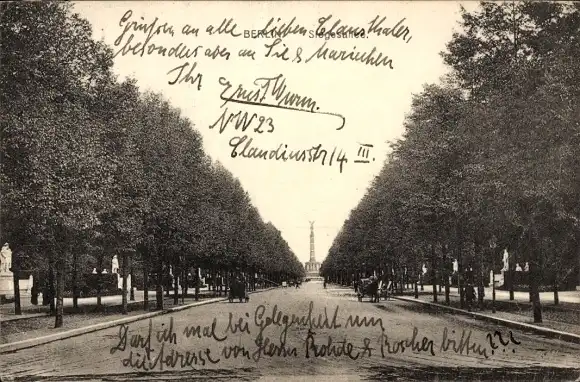 Grüssen an alle lieben Clausthaler,
BERLIN Siegesallee.
besonders aber an Sie & Mariechen
Ihr
Ernst Wurm.
NW 23
Claudiusstr 14 III.
Darf ich mal bei Gelegenheit um
die Adresse von Herrn Rohde & Roscher bitten???